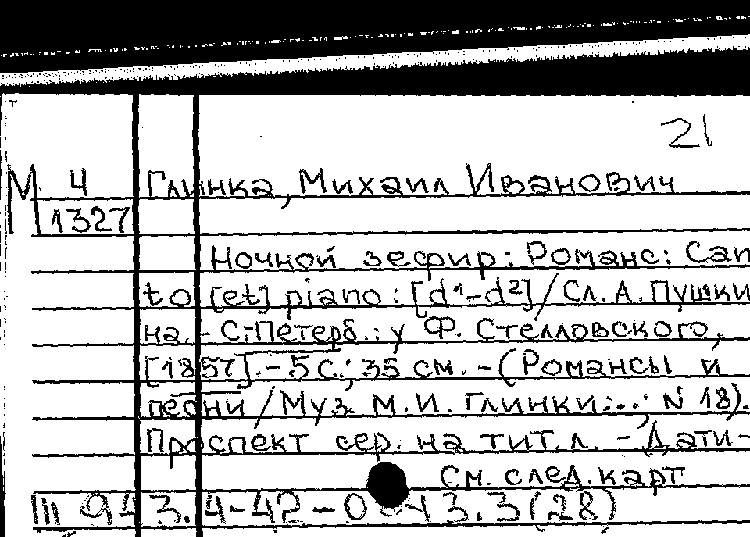 21
М 4 Глинка, Михаил Иванович
1327
Ночной зефир: Романс: Can
to [et] piano: [d¹-d²]/Сл. А. Пушки
на. - С.-Петерб.: у Ф. Стелловского,
[1857]. - 5 с.; 35 см. - (Романсы и
песни / Муз. М.И. Глинки...; N 18).
Проспект сер. на тит. л. - Дати-
См. след. карт